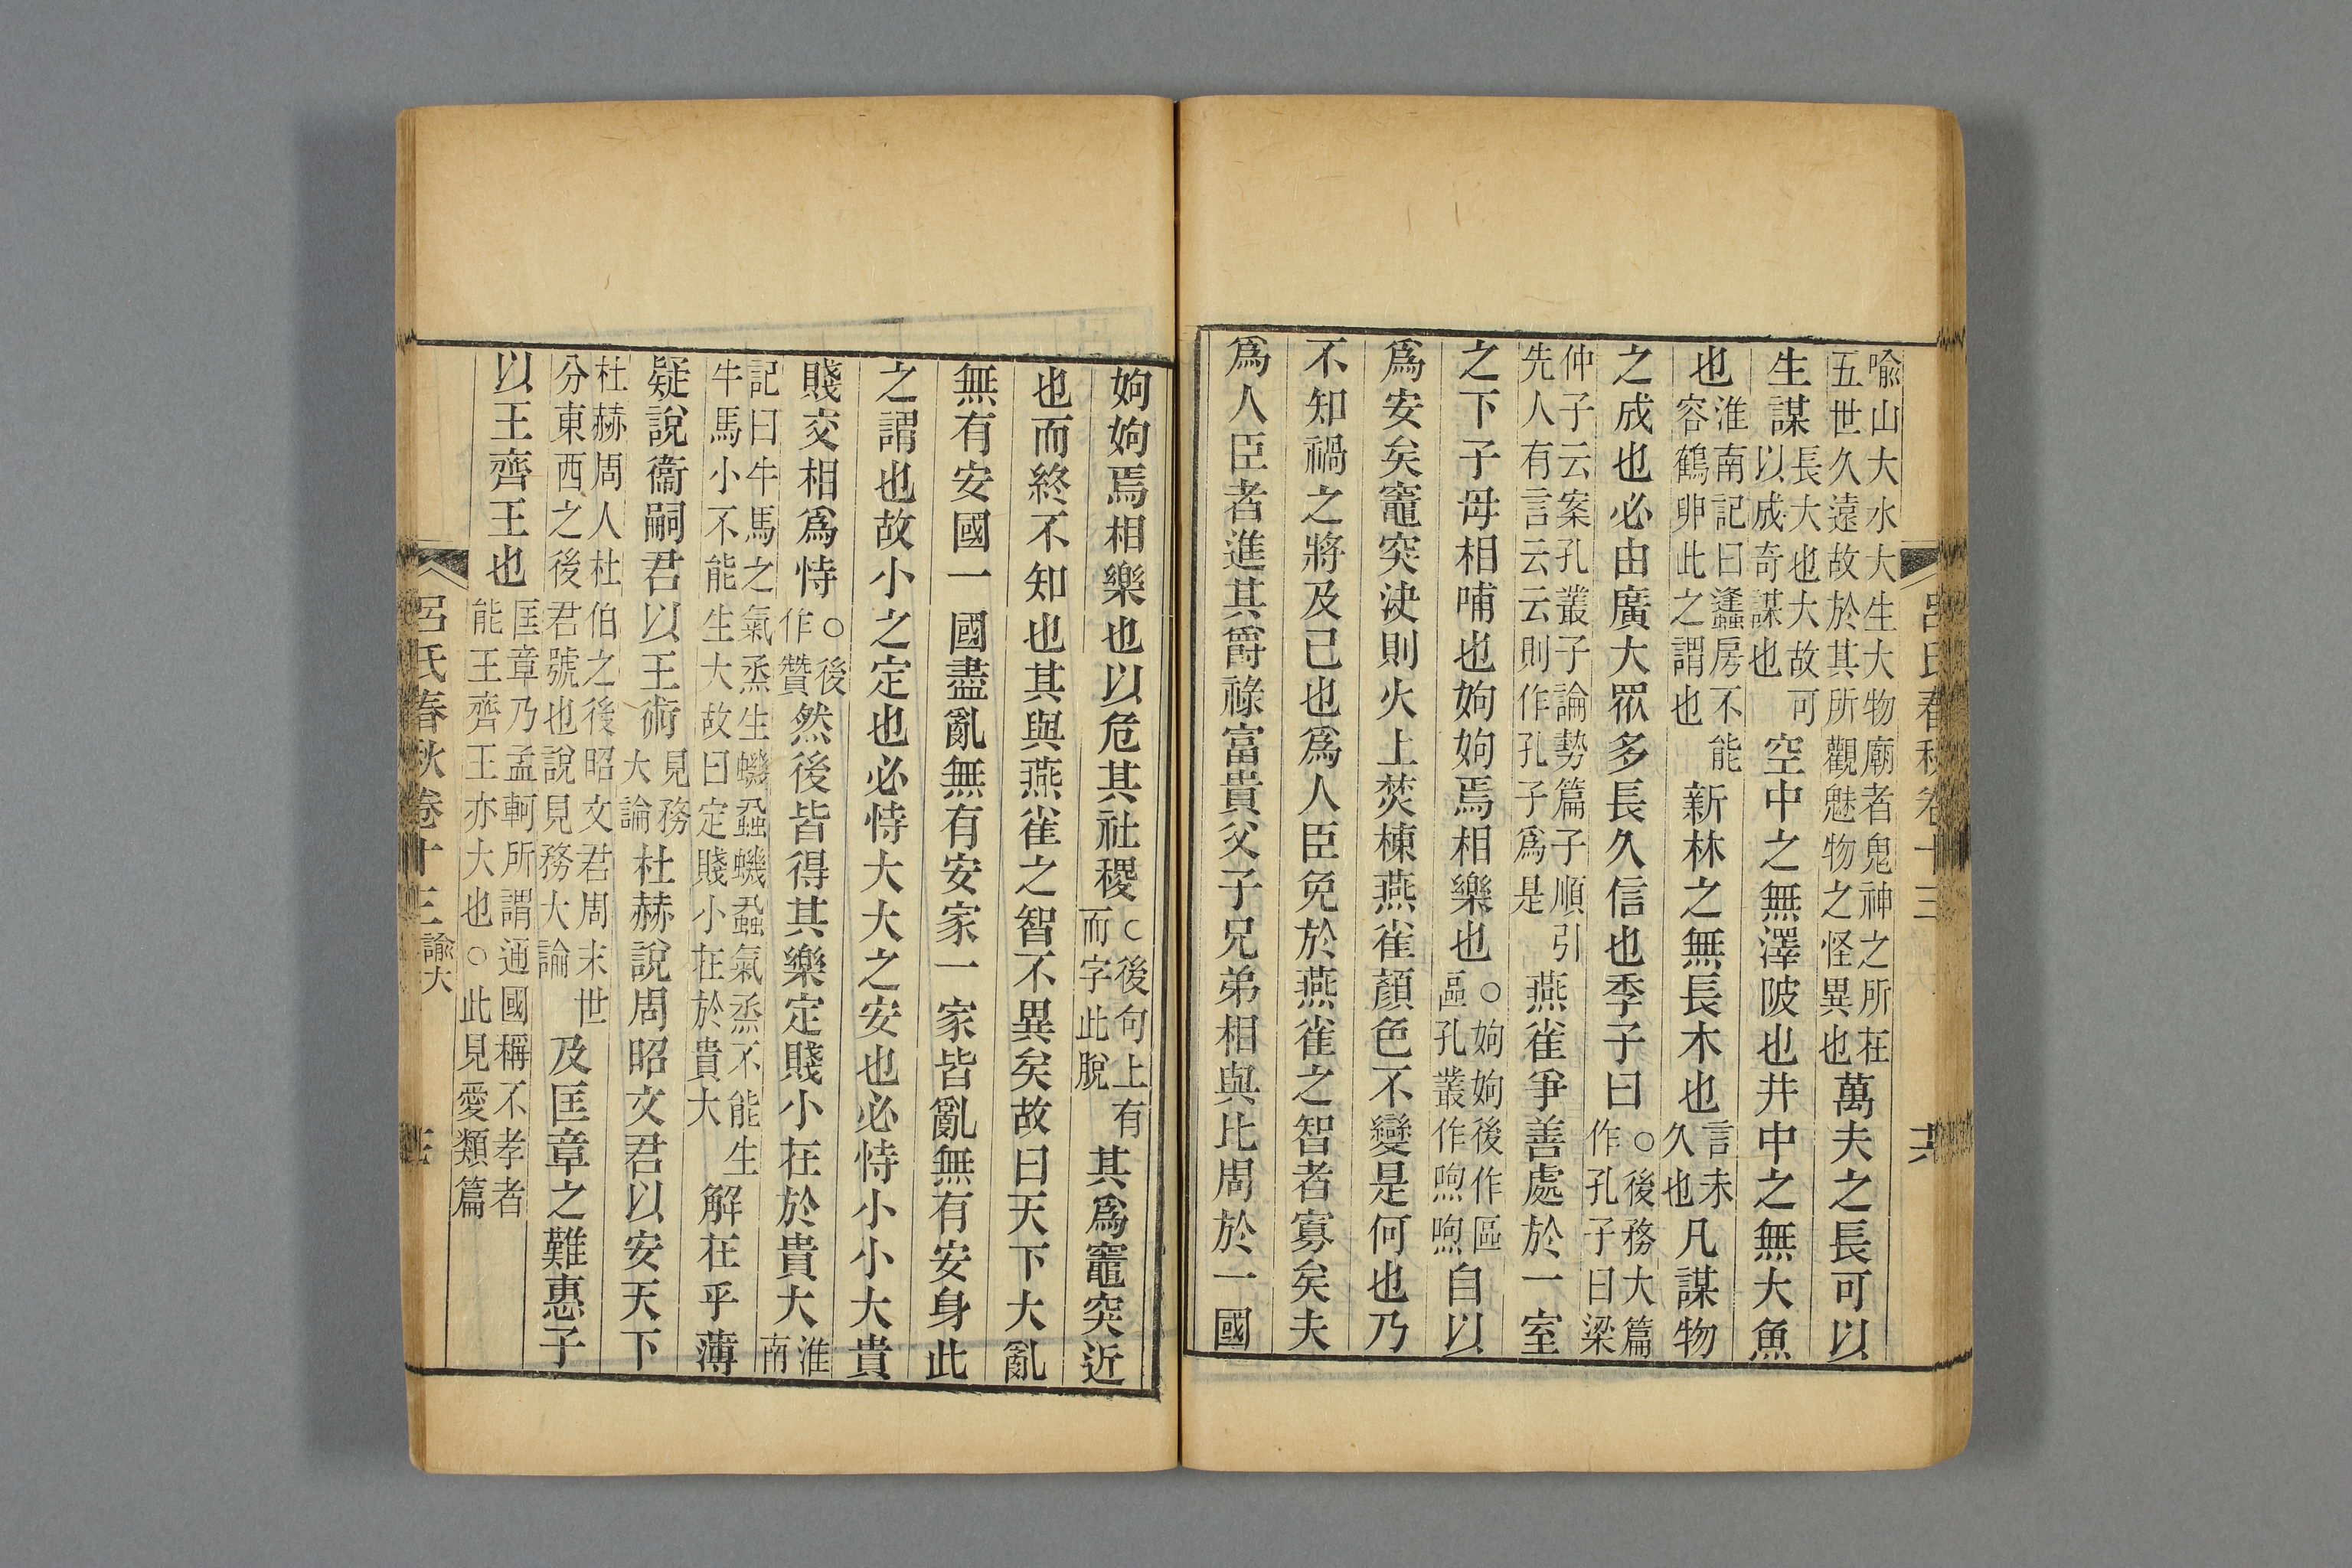 呂氏春秋卷十三
喻山大水大生大物廟者鬼神之所在五世久遠故於其所觀魅物之怪異也萬夫之長可以
生謀長大也大故可以成奇謀也空中之無澤陂也井中之無大魚
也淮南記曰蠭房不能容鶴卵此之謂也新林之無長木也言未久也凡謀物
之成也必由廣大眾多長久信也季子曰○後務大篇作孔子曰梁
仲子云案孔叢子論勢篇子順引先人有言云云則作孔子爲是燕雀爭善處於一室
之下子母相哺也姁姁焉相樂也○姁姁後作區區孔叢作喣喣自以
爲安矣竈突決則火上焚棟燕雀顏色不變是何也乃
不知禍之將及己也爲人臣免於燕雀之智者寡矣夫
爲人臣者進其爵祿富貴父子兄弟相與比周於一國
姁姁焉相樂也以危其社稷○後句上有而字此脫其爲竈突近
也而終不知也其與燕雀之智不異矣故曰天下大亂
無有安國一國盡亂無有安家一家皆亂無有安身此
之謂也故小之定也必恃大大之安也必恃小小大貴
賤交相爲恃○後作贊然後皆得其樂定賤小在於貴大淮南
記曰牛馬之氣烝生蟣蝨蟣蝨氣烝不能生牛馬小不能生大故曰定賤小在於貴大解在乎薄
疑說衞嗣君以王術見務大論杜赫說周昭文君以安天下
杜赫周人杜伯之後昭文君周末世分東西之後君號也說見務大論及匡章之難惠子
以王齊王也匡章乃孟軻所謂通國稱不孝者能王齊王亦大也○此見愛類篇
呂氏春秋卷十三 諭大